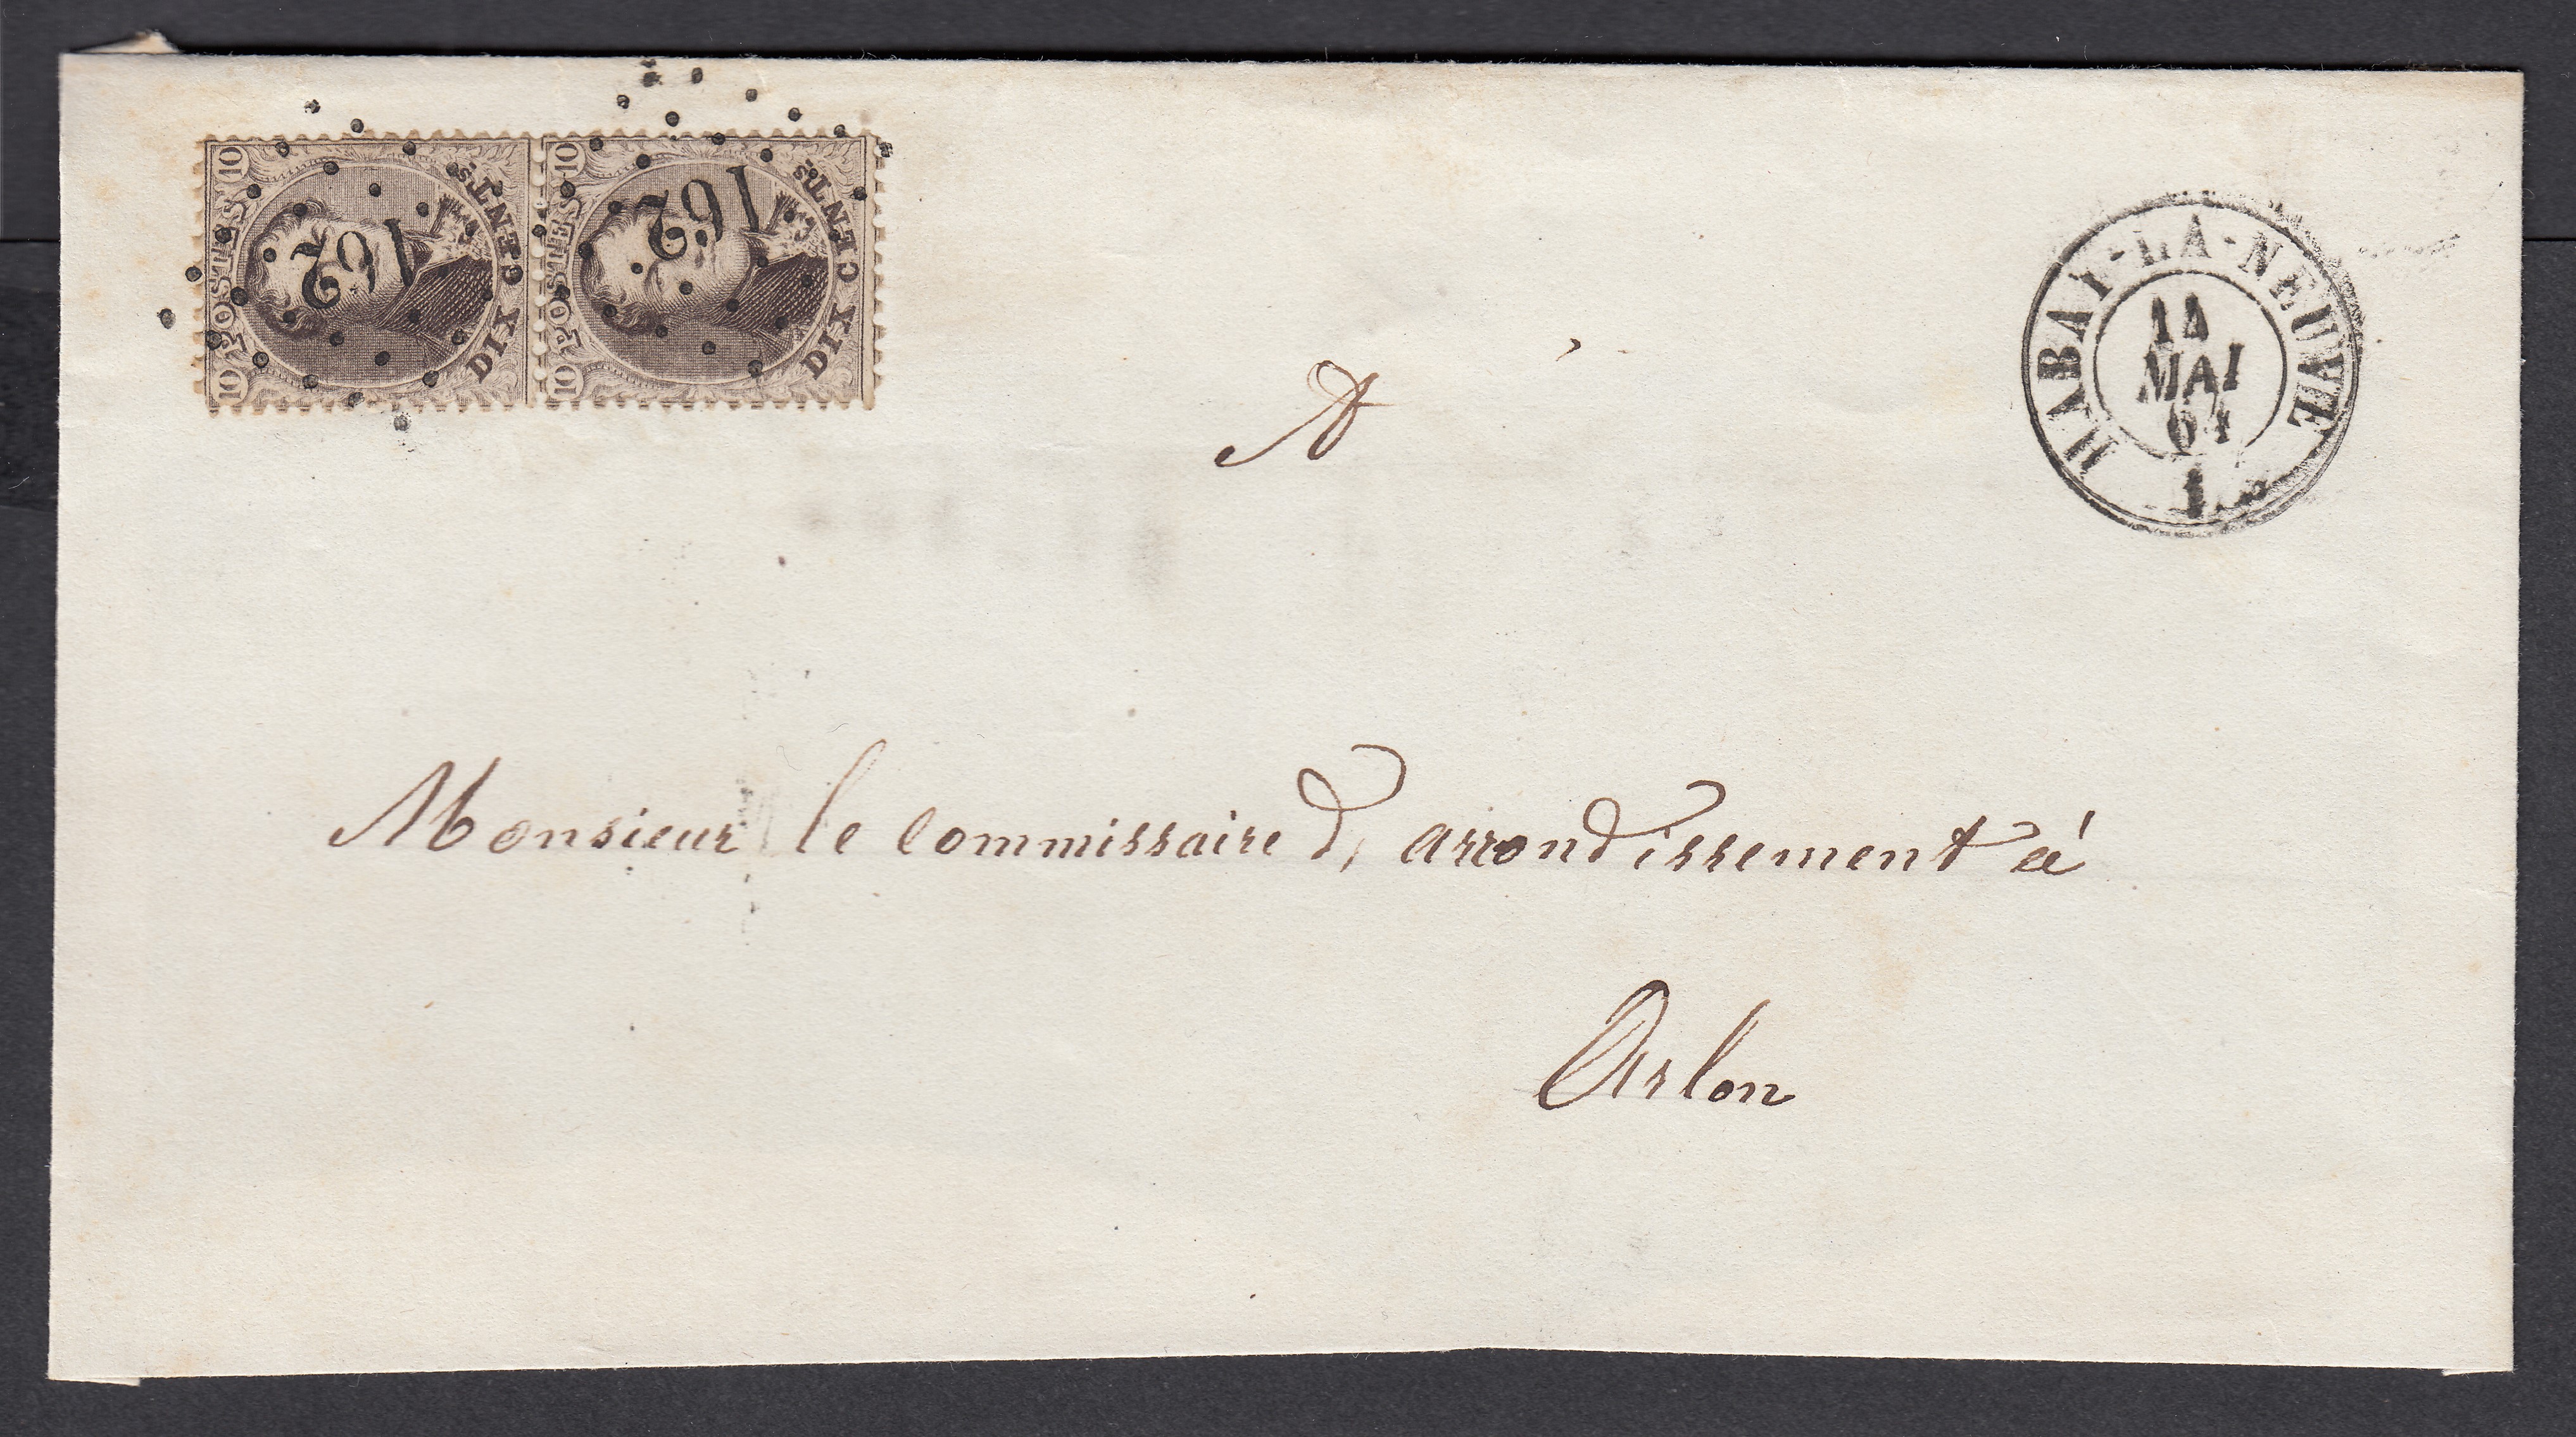 10 POSTES 10
DIX CENTS.
162
10 POSTES 10
DIX CENTS.
162
HABAY-LA-NEUVE
14
MAI
64
1
A
Monsieur le commissaire d, arrondissement à
Arlon